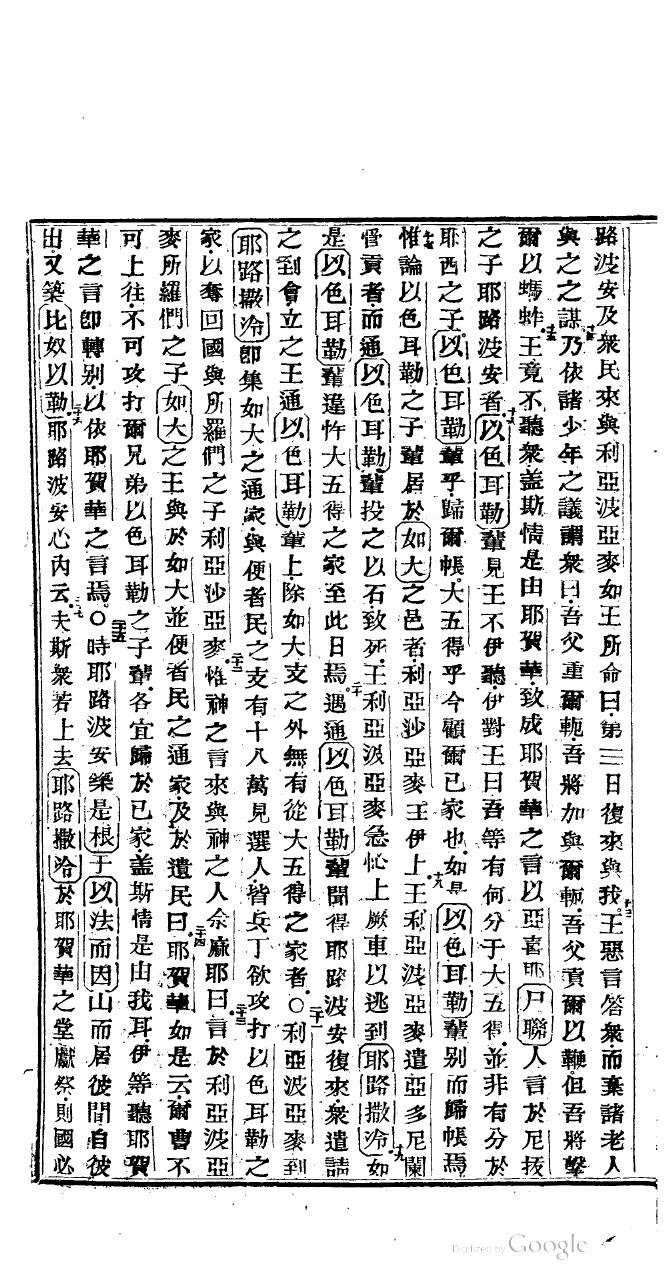 路波安及衆民來與利亞波亞麥如王所命曰第三日復來與我十三王惡言答衆而棄諸老人
與之之謀十四乃依諸少年之議謂衆曰吾父重爾軛吾將加與爾軛吾父責爾以鞭但吾將擊
爾以螞蚱十五王竟不聽衆盖斯情是由耶賀華致成耶賀華之言以亞喜耶尸聯人言於尼扳
之子耶路波安者十六以色耳勒輩見王不伊聽伊對王曰吾等有何分于大五得並非有分於
耶西之子以色耳勒輩乎歸爾帳大五得乎今顧爾已家也如是以色耳勒輩别而歸帳焉
十七惟論以色耳勒之子輩居於如大之邑者利亞沙亞麥王伊上十八王利亞波亞麥遣亞多尼闌
督貢者而通以色耳勒輩投之以石致死王利亞波亞麥急忙上厥車以逃到耶路撒冷十九如
是以色耳勒輩違忤大五得之家至此日焉二十遇通以色耳勒輩聞得耶路波安復來衆遣請
之到會立之王通以色耳勒輩上除如大支之外無有從大五得之家者○二十一利亞波亞麥到
耶路撒冷即集如大之通家與便者民之支有十八萬見選人皆兵丁欲攻打以色耳勒之
家以奪回國與所羅們之子利亞沙亞麥二十二惟神之言來與神之人佘麻耶曰二十三言於利亞波亞
麥所羅們之子如大之王與於如大並便者民之通家及於遺民曰二十四耶賀華如是云爾曹不
可上往不可攻打爾兄弟以色耳勒之子輩各宜歸於已家盖斯情是由我耳伊等聽耶賀
華之言即轉别以依耶賀華之言焉○二十五時耶路波安築是根于以法而因山而居彼間自彼
出又築比奴以勒二十六耶路波安心內云二十七夫斯衆若上去耶路撒冷於耶賀華之堂獻祭則國必
Digitized by Google